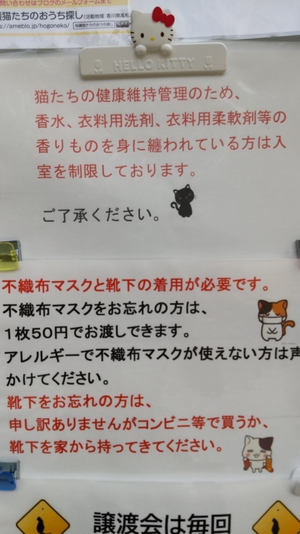 い合わせはブログのメールフォームまで
猫たちのおうち探し
//ameblo.jp/hogoneko/
HELLO KITTY
猫たちの健康維持管理のため、
香水、衣料用洗剤、衣料用柔軟剤等の
香りものを身に纏われている方は入
室を制限しております。
ご了承ください。
不織布マスクと靴下の着用が必要です。
不織布マスクをお忘れの方は、
1枚50円でお渡しできます。
アレルギーで不織布マスクが使えない方は声
かけてください。
靴下をお忘れの方は、
申し訳ありませんがコンビニ等で買うか、
靴下を家から持ってきてください。
譲渡会は毎回